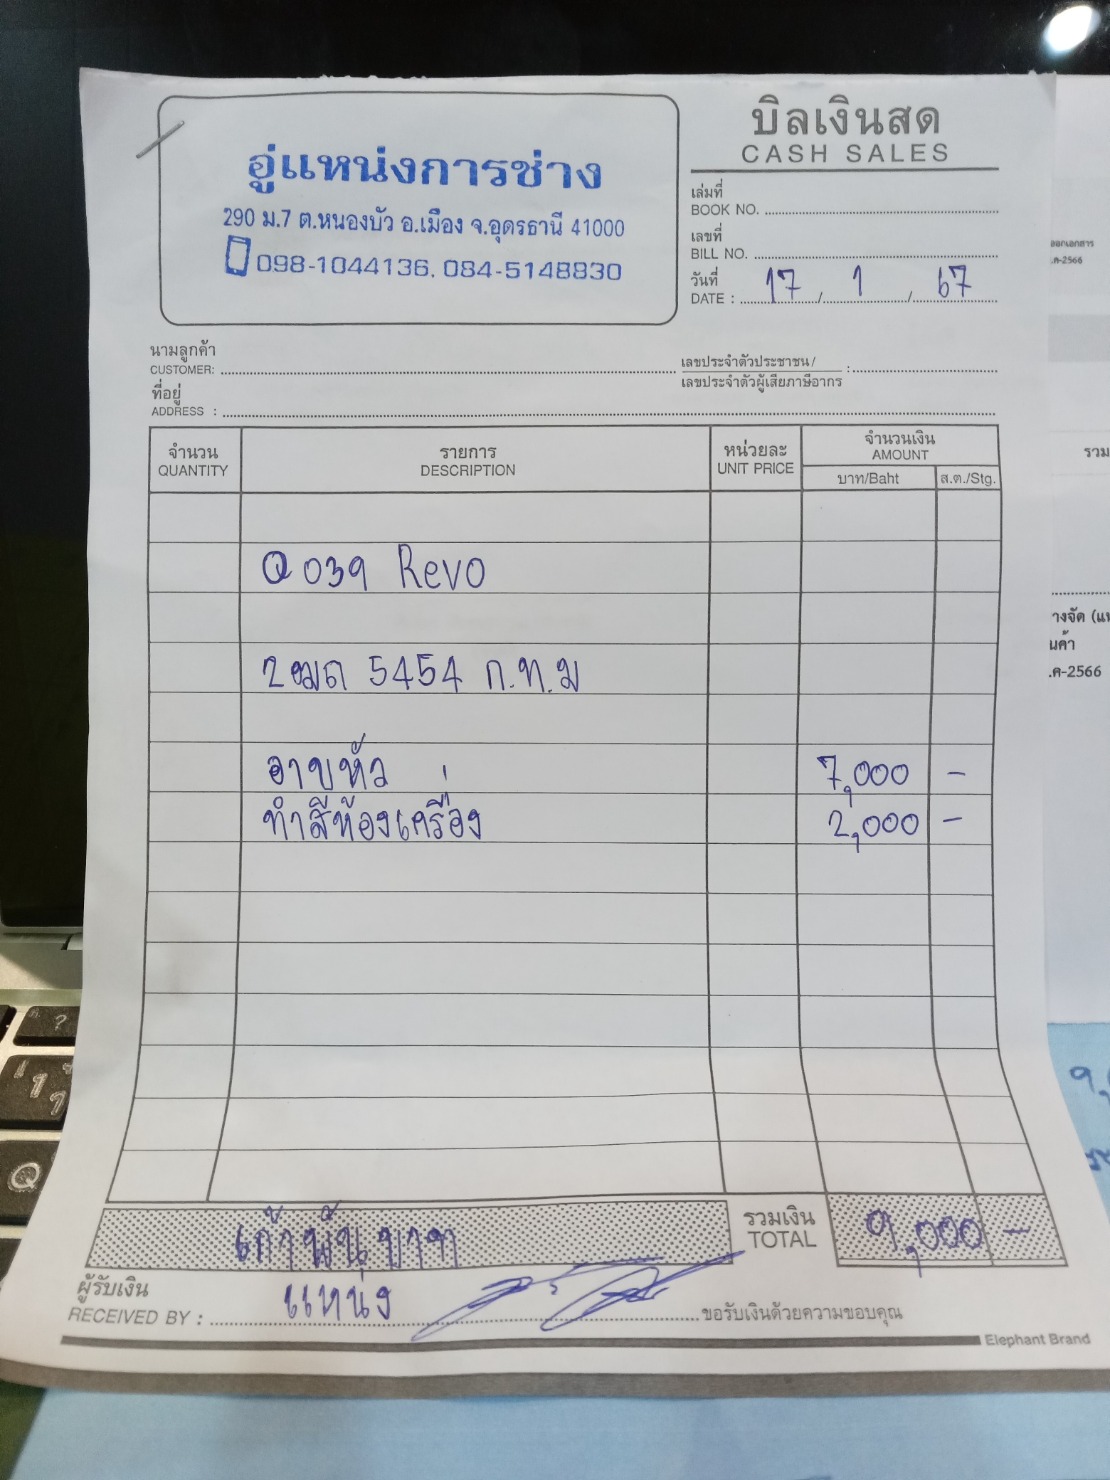 อู่แหน่งการช่าง
290 ม.7 ต.หนองบัว อ.เมือง จ.อุดรธานี 41000
098-1044136, 084-5148830
บิลเงินสด
CASH SALES
เล่มที่
BOOK NO.
เลขที่
BILL NO.
วันที่
DATE : 17 / 1 / 67
นามลูกค้า
CUSTOMER:
เลขประจำตัวประชาชน/
เลขประจำตัวผู้เสียภาษีอากร :
ที่อยู่
ADDRESS :
จำนวน รายการ หน่วยละ จำนวนเงิน
QUANTITY DESCRIPTION UNIT PRICE AMOUNT
บาท/Baht ส.ต./Stg.
Q039 Revo
2ฒถ 5454 ก.ท.ม
อาบหัว 7,000 -
ทำสีห้องเครื่อง 2,000 -
เก้าพันบาท รวมเงิน 9,000 -
TOTAL
ผู้รับเงิน
RECEIVED BY : แหน่ง ขอรับเงินด้วยความขอบคุณ
Elephant Brand
ออกเอกสาร
.ค-2566
รวม
างจัด (แ
นค้า
.ค-2566